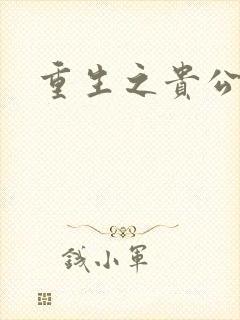 重生之貴公
錢小軍